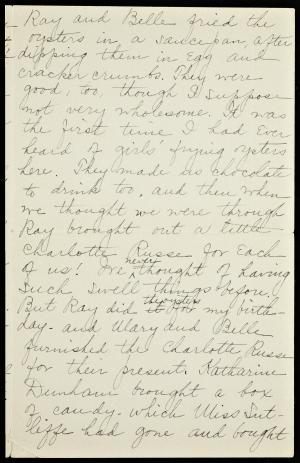 Ray and Belle fried the
oysters in a saucepan, after
dipping them in egg and
cracker crumbs. They were
good, too, though I suppose
not very wholesome. It was
the first time I had ever
heard of girls' frying oysters
here. They made us chocolate
to drink too, and then when
we thought we were through
Ray brought out a little
Charlotte Russe for each
of us! I've never thought of having
such swell things before.
But Ray did it the oysters for my birth-
day - and Mary and Belle
furnished the Charlotte Russe
for their present. Katharine
Dunham brought a box
of candy - which Miss Sut-
liffe had gone and bought